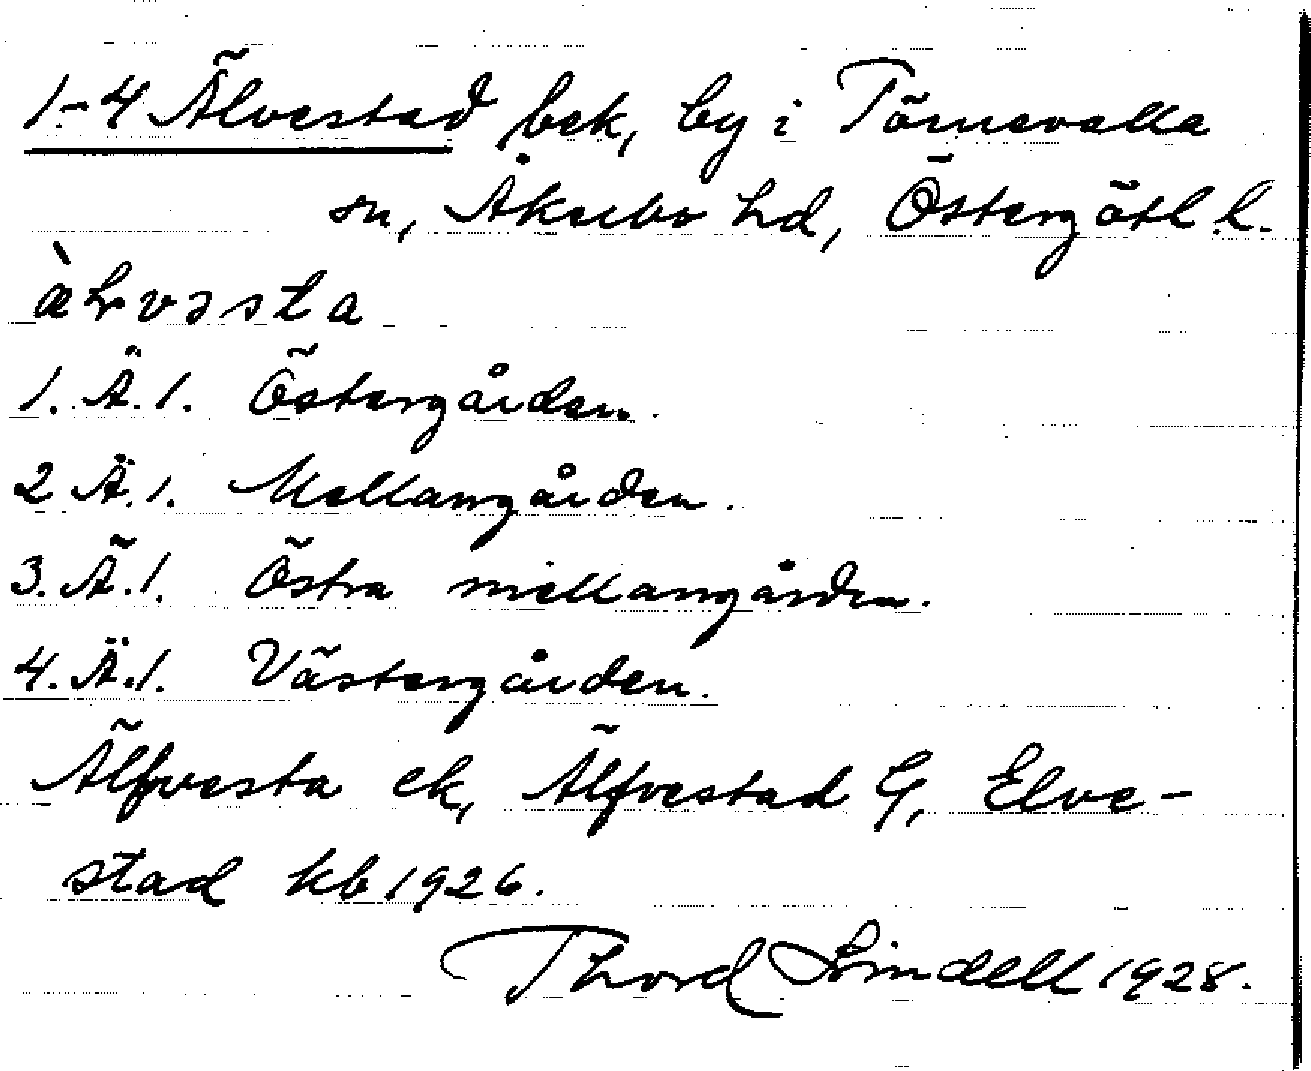 1-4 Älvestad bek, by i Törnevalla
sn, Åkerbo hd, Östergötl l.
1. Ä. 1. Östergården.
2 Ä. 1. Mellangården.
3. Ä. 1. Östra mellangården.
4. Ä. 1. Västergården.
Älfvesta ek, Älfvestad G, Elve-
stad kb 1926.
Thord Lindell 1928.